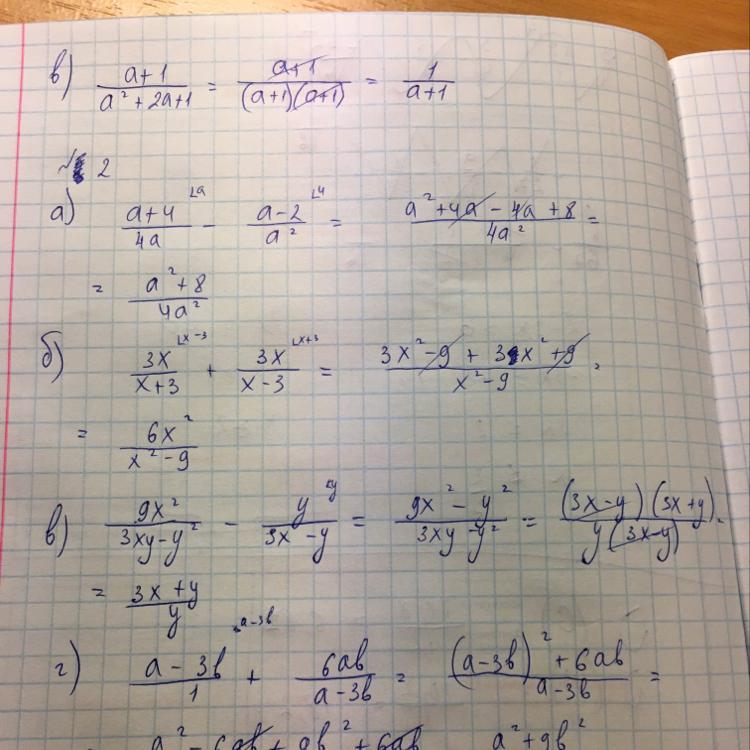 в) a+1 / a²+2a+1 = a+1 / (a+1)(a+1) = 1 / a+1
№ 2
а) a+4 ⌊a / 4a − a−2 ⌊4 / a² = a²+4a−4a+8 / 4a² =
= a²+8 / 4a²
б) 3x ⌊x−3 / x+3 + 3x ⌊x+3 / x−3 = 3x²−9+3x²+9 / x²−9 =
= 6x² / x²−9
в) 9x² / 3xy−y² − y ⌊y / 3x−y = 9x²−y² / 3xy−y² = (3x−y)(3x+y) / y(3x−y) =
= 3x+y / y
г) a−3b ⌊a−3b / 1 + 6ab / a−3b = (a−3b)²+6ab / a−3b =
= a²−6ab+9b²+6ab a²+9b²